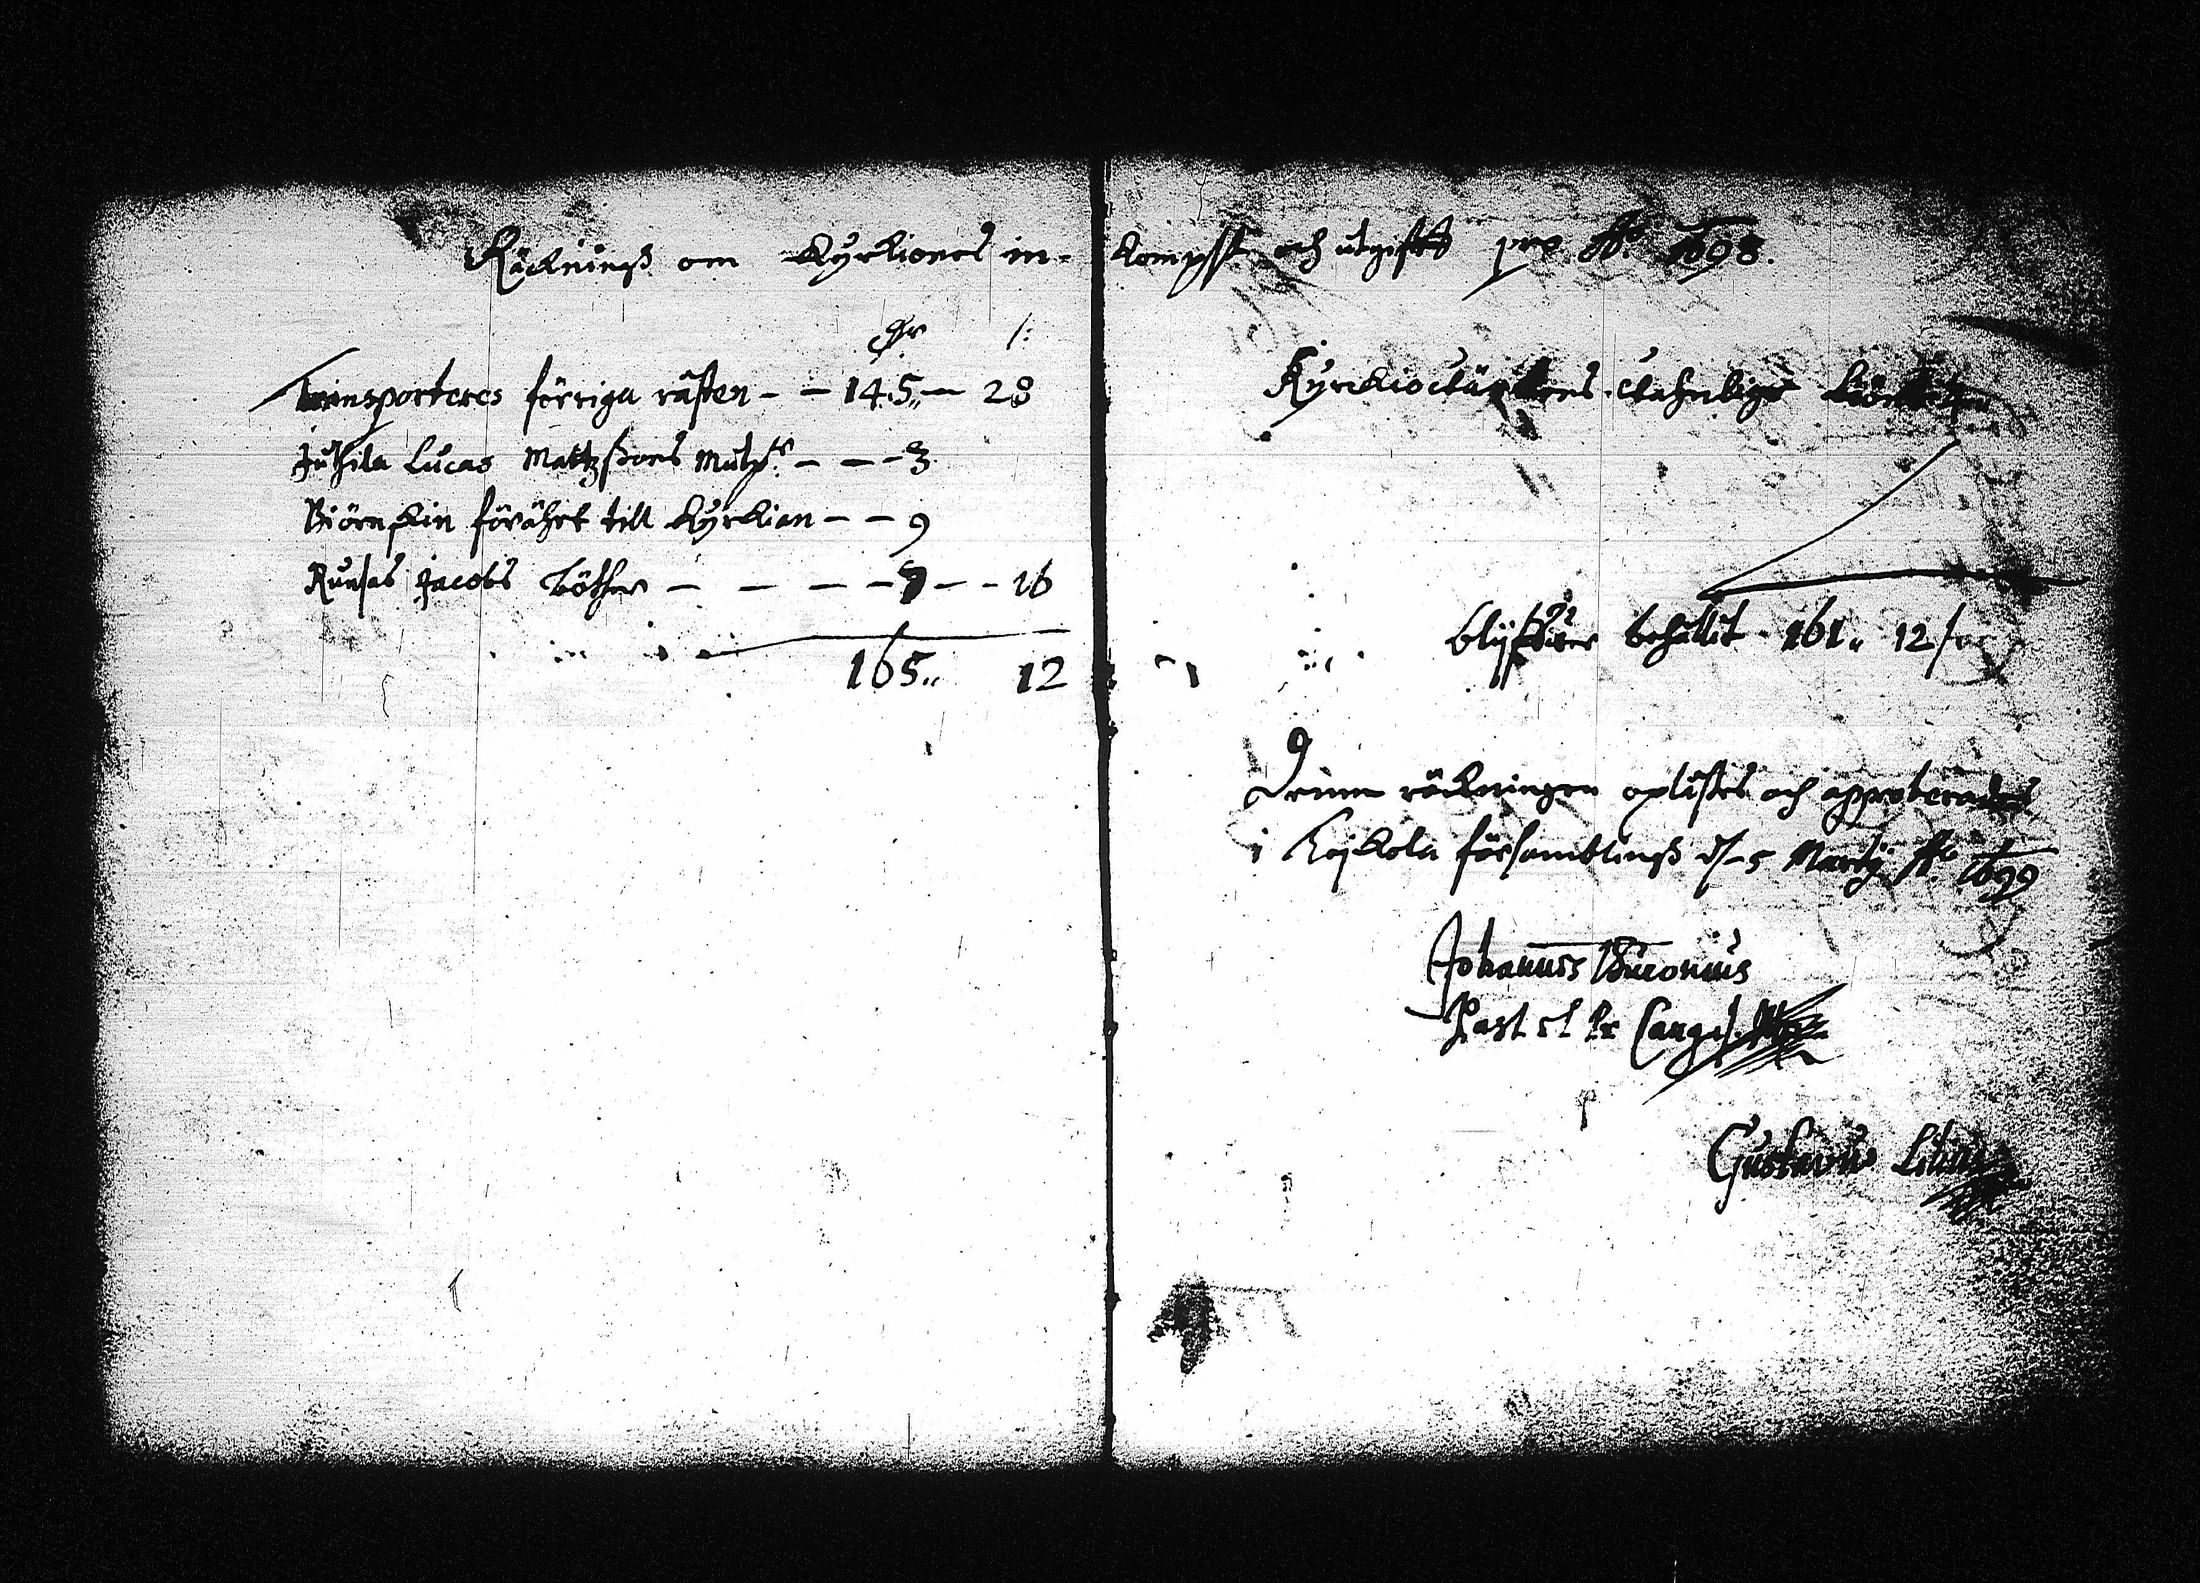 Räckningß om Kyrkiones in-
kompst och utgifft pro Ao. 1698.
dr /:
Transporteres förriga rästen - - 145,, - 28
Juthila Lucas Mattzsons Mulct - - - 3
Biörnskin förährt till kyrkian - - 9
Runsas Jacobs böther - - - - 7 - - 16
165,, 12
Kyrckiovächtares vahnlige
blijfver behållit - 161,, 12
Denne räckningen oplästes och approberades
i Loikola församblingß d. 5 Martij Ao 1699
Johannes
Past et Pr
Gustavus Lilius